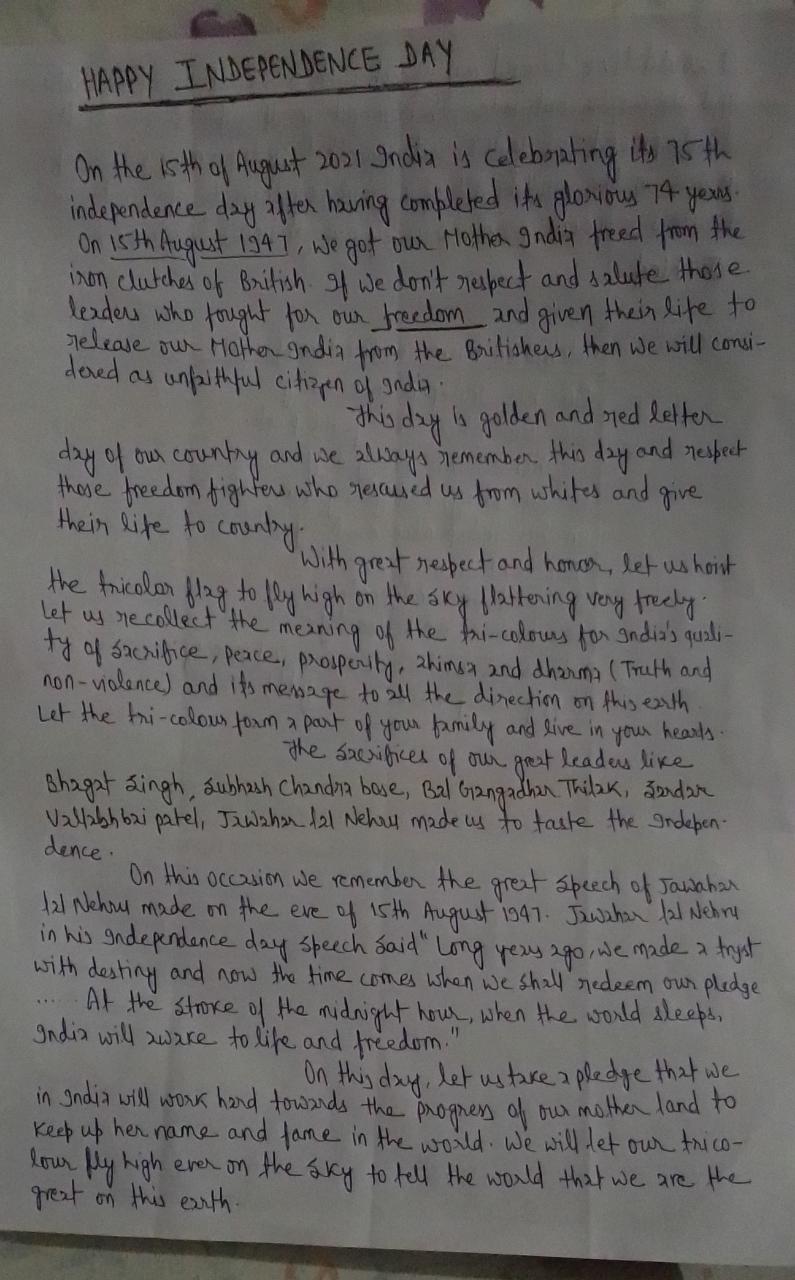 HAPPY INDEPENDENCE DAY
On the 15th of August 2021 India is celebrating its 75th
independence day after having completed its glorious 74 years.
On 15th August 1947, we got our Mother India freed from the
iron clutches of British. If we don't respect and salute those
leaders who fought for our freedom and given their life to
release our Mother India from the Britishers, then we will consi-
dered as unfaithful citizen of India.
This day is golden and red letter
day of our country and we always remember this day and respect
those freedom fighters who rescused us from whites and give
their life to country.
With great respect and honor, let us hoist
the tricolor flag to fly high on the sky flattering very freely.
Let us recollect the meaning of the tri-colours for India's quali-
ty of sacrifice, peace, prosperity, ahimsa and dharma (Truth and
non-violence) and its message to all the direction on this earth.
Let the tri-colour form a part of your family and live in your hearts.
The sacrifices of our great leaders like
Bhagat Singh, Subhash Chandra bose, Bal Gangadhar Thilak, Sardar
Vallabhbai patel, Jawahar lal Nehru made us to taste the Indepen-
dence.
On this occasion we remember the great speech of Jawahar
lal Nehru made on the eve of 15th August 1947. Jawahar lal Nehru
in his Independence day speech said "Long years ago, we made a tryst
with destiny and now the time comes when we shall redeem our pledge
..... At the stroke of the midnight hour, when the world sleeps,
India will awake to life and freedom."
On this day, let us take a pledge that we
in India will work hard towards the progress of our mother land to
keep up her name and fame in the world. We will let our trico-
lour fly high ever on the sky to tell the world that we are the
great on this earth.